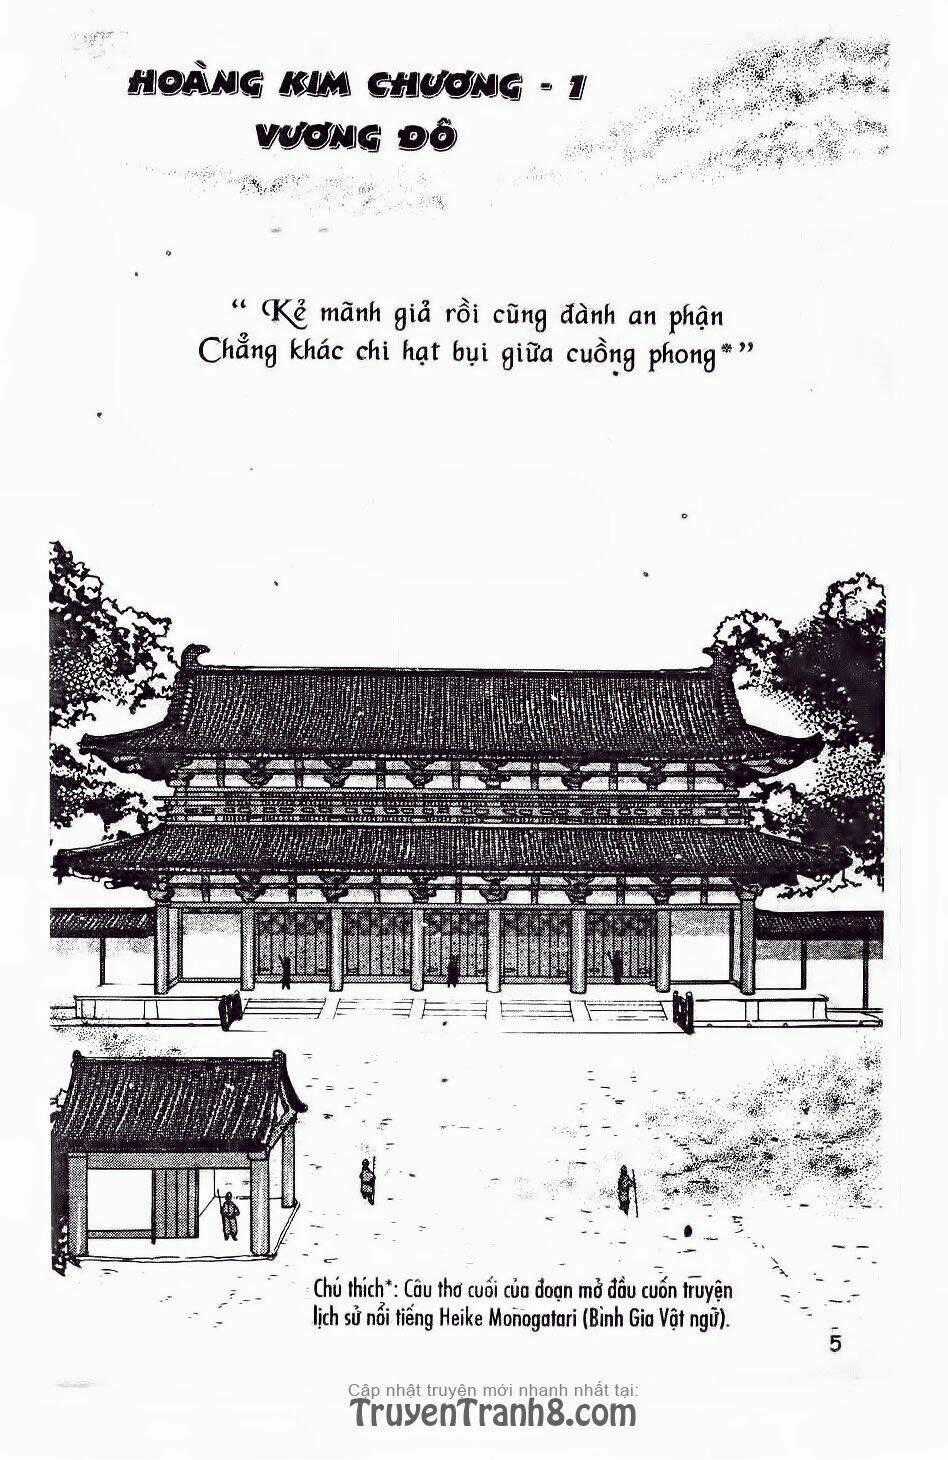 HOÀNG KIM CHƯƠNG - 1
VƯƠNG ĐÔ
“ Kẻ mãnh giả rồi cũng đành an phận
Chẳng khác chi hạt bụi giữa cuồng phong*”
Chú thích*: Câu thơ cuối của đoạn mở đầu cuốn truyện
lịch sử nổi tiếng Heike Monogatari (Bình Gia Vật ngữ).
5
Cập nhật truyện mới nhanh nhất tại:
TruyenTranh8.com